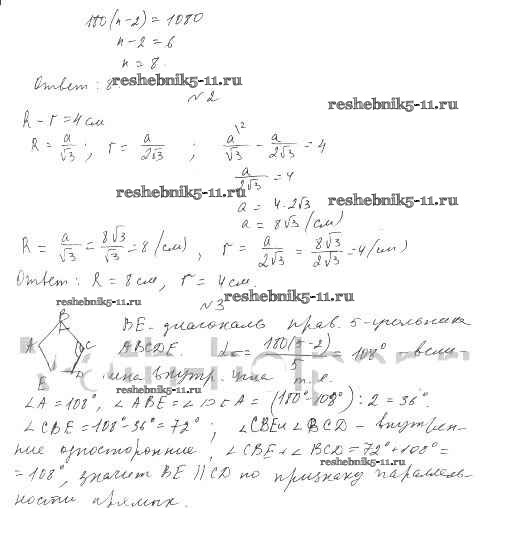 180(n-2)=1080
n-2=6
n=8.
Ответ: 8
reshebnik5-11.ru
№2
reshebnik5-11.ru
R-r=4см
R=a/√3; r=a/2√3; a\²/√3 - a/2√3 =4
a/2√3=4
reshebnik5-11.ru
a=4·2√3
reshebnik5-11.ru
a=8√3 (см)
R=a/√3=8√3/√3=8 (см), r=a/2√3=8√3/2√3=4(см)
Ответ: R=8см, r=4см.
reshebnik5-11.ru
№3
reshebnik5-11.ru
B
A
C
E
D
BE-диагональ прав. 5-угольника
ABCDE. =180(5-2)/5=108°-вели-
чина внутр. угла т.е.
reshebnik5-11.ru
∠A=108°, ∠ABE=∠BEA=(180°-108°):2=36°.
∠CBE=108°-36°=72°; ∠CBE и ∠BCD-внутрен-
ние односторонние, ∠CBE+∠BCD=72°+108°=
reshebnik5-11.ru
=108°, значит BE||CD по признаку параллель-
ности прямых.